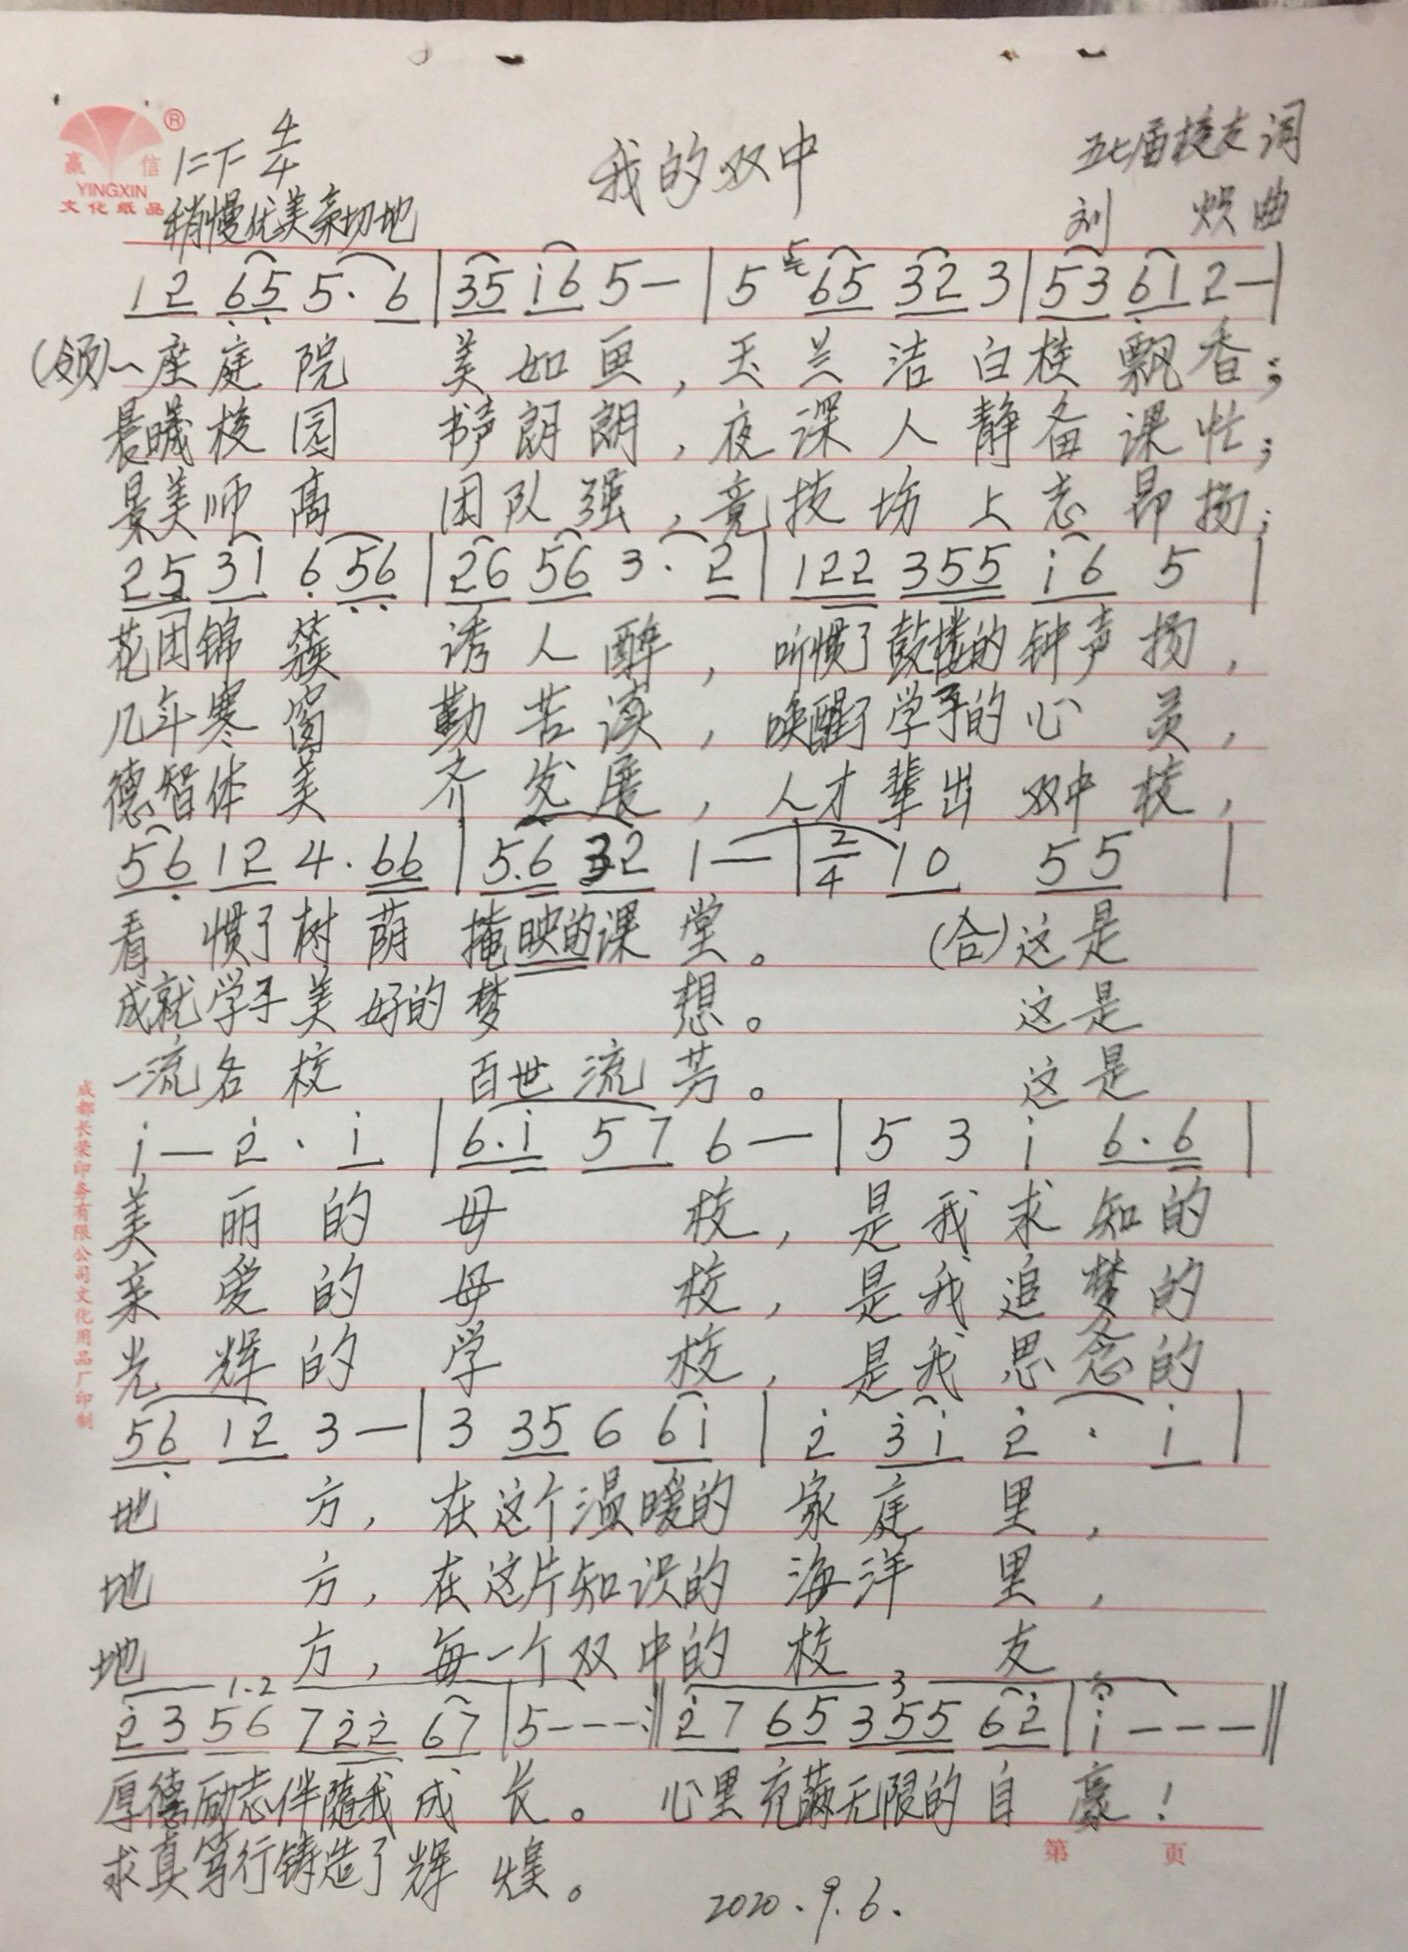 赢信®
YINGXIN
文化纸品
1=F 4/4
我的双中
五七届校友词
稍慢优美亲切地
刘 炽曲
12 65 5· 6 | 35 i6 5— | 5 65 32 3 | 53 61 2— |
(领)一座庭院 美如画,玉兰洁白桂飘香;
晨曦校园 书声朗朗,夜深人静备课忙;
景美师高 团队强,竞技场上志昂扬;
25 31 6 56 | 26 56 3· 2 | 122 355 i6 5 |
花团锦簇 诱人醉,听惯了鼓楼的钟声扬,
几年寒窗 勤苦读,唤醒了学子的心 灵,
德智体美 齐发展,人才辈出双中校,
56 12 4·66 | 5·6 32 1— | 2/4 10 55 |
看惯了树荫 掩映的课堂。 (合)这是
成就学子美好的梦 想。 这是
一流名校 百世流芳。 这是
i— 2̇· i | 6·i 57 6— | 5 3 i 6·6 |
美丽的母 校,是我求知的
亲爱的母 校,是我追梦的
光辉的学 校,是我思念的
56 12 3— | 3 35 6 6i | 2̇ 3̇i 2̇· i |
地 方,在这个温暖的家庭里,
地 方,在这片知识的海洋里,
地 方,每一个双中的校 友
1.2 3
2̇3 56 72̇2̇ 67 | 5---:‖ 2̇7 65 355 62̇ | i---‖
厚德励志伴随我成长。 心里充满无限的自豪!
求真笃行铸造了辉煌。
第 页
2020.9.6.
成都长荣印务有限公司文化用品厂印制